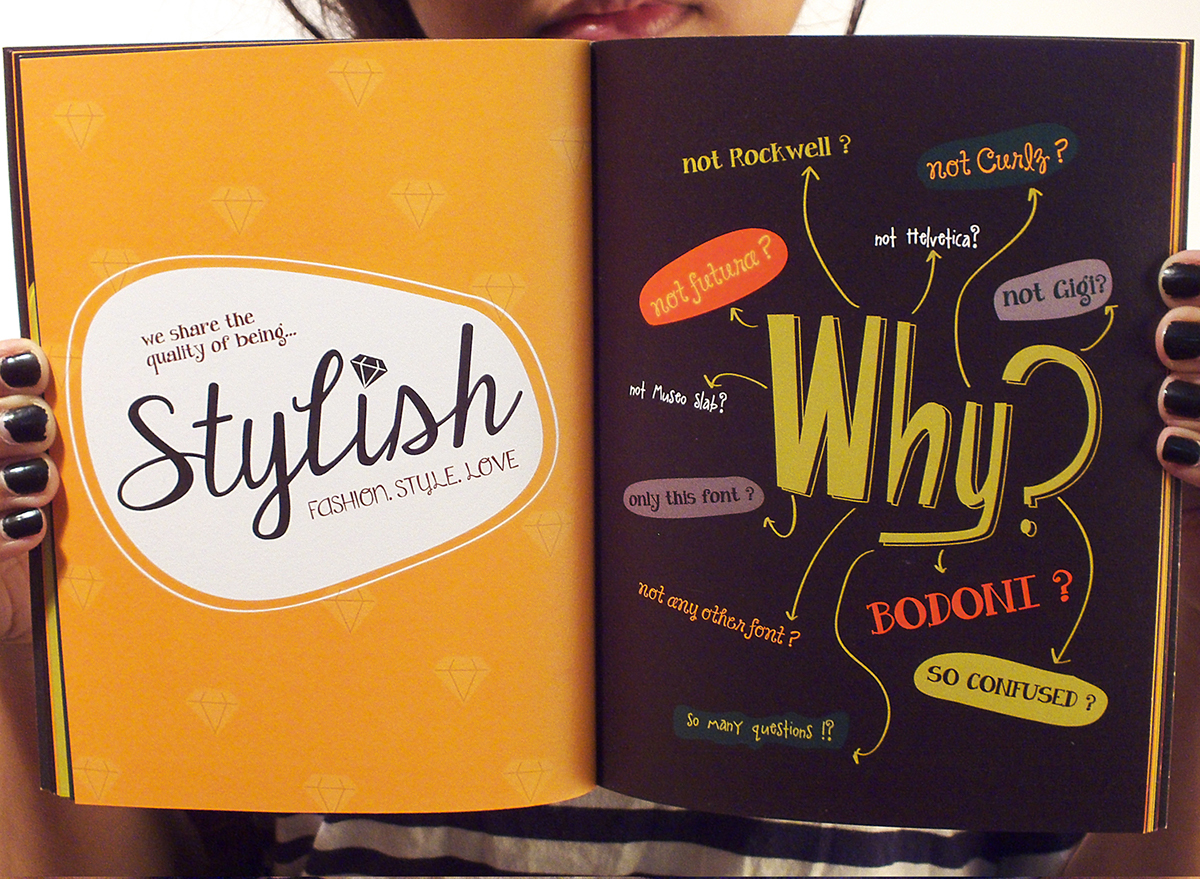 we share the
quality of being...
Stylish
FASHION. STYLE. LOVE
not Rockwell ?
not Curlz ?
not Helvetica?
not futura ?
not Gigi?
Why?
not Museo Slab?
only this font ?
not any other font ?
BODONI ?
SO CONFUSED ?
so many questions !?